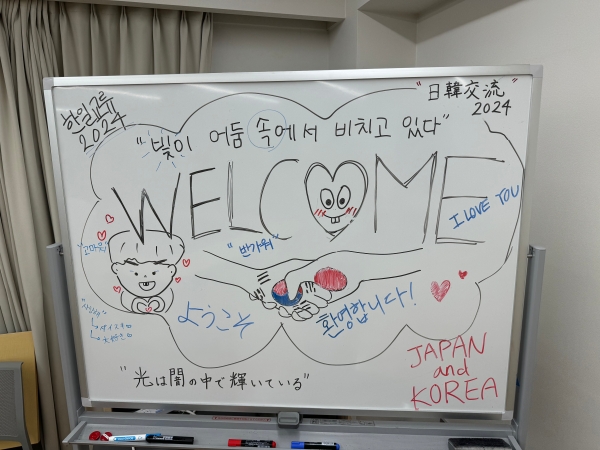 한일교류
2024
"日韓交流"
2024
"빛이 어둠 속에서 비치고 있다"
WELCOME
I LOVE YOU
"고마워"
"반가워"
ようこそ
환영합니다!
"사랑해"
ダイスキ
大好き
"光は闇の中で輝いている"
JAPAN
and
KOREA